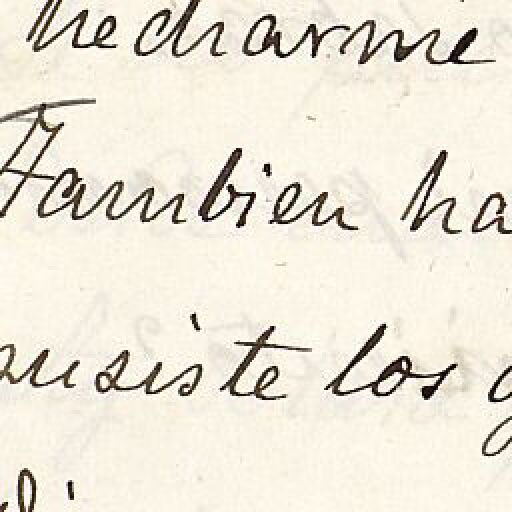 hecharme
Tambien ha
usiste los